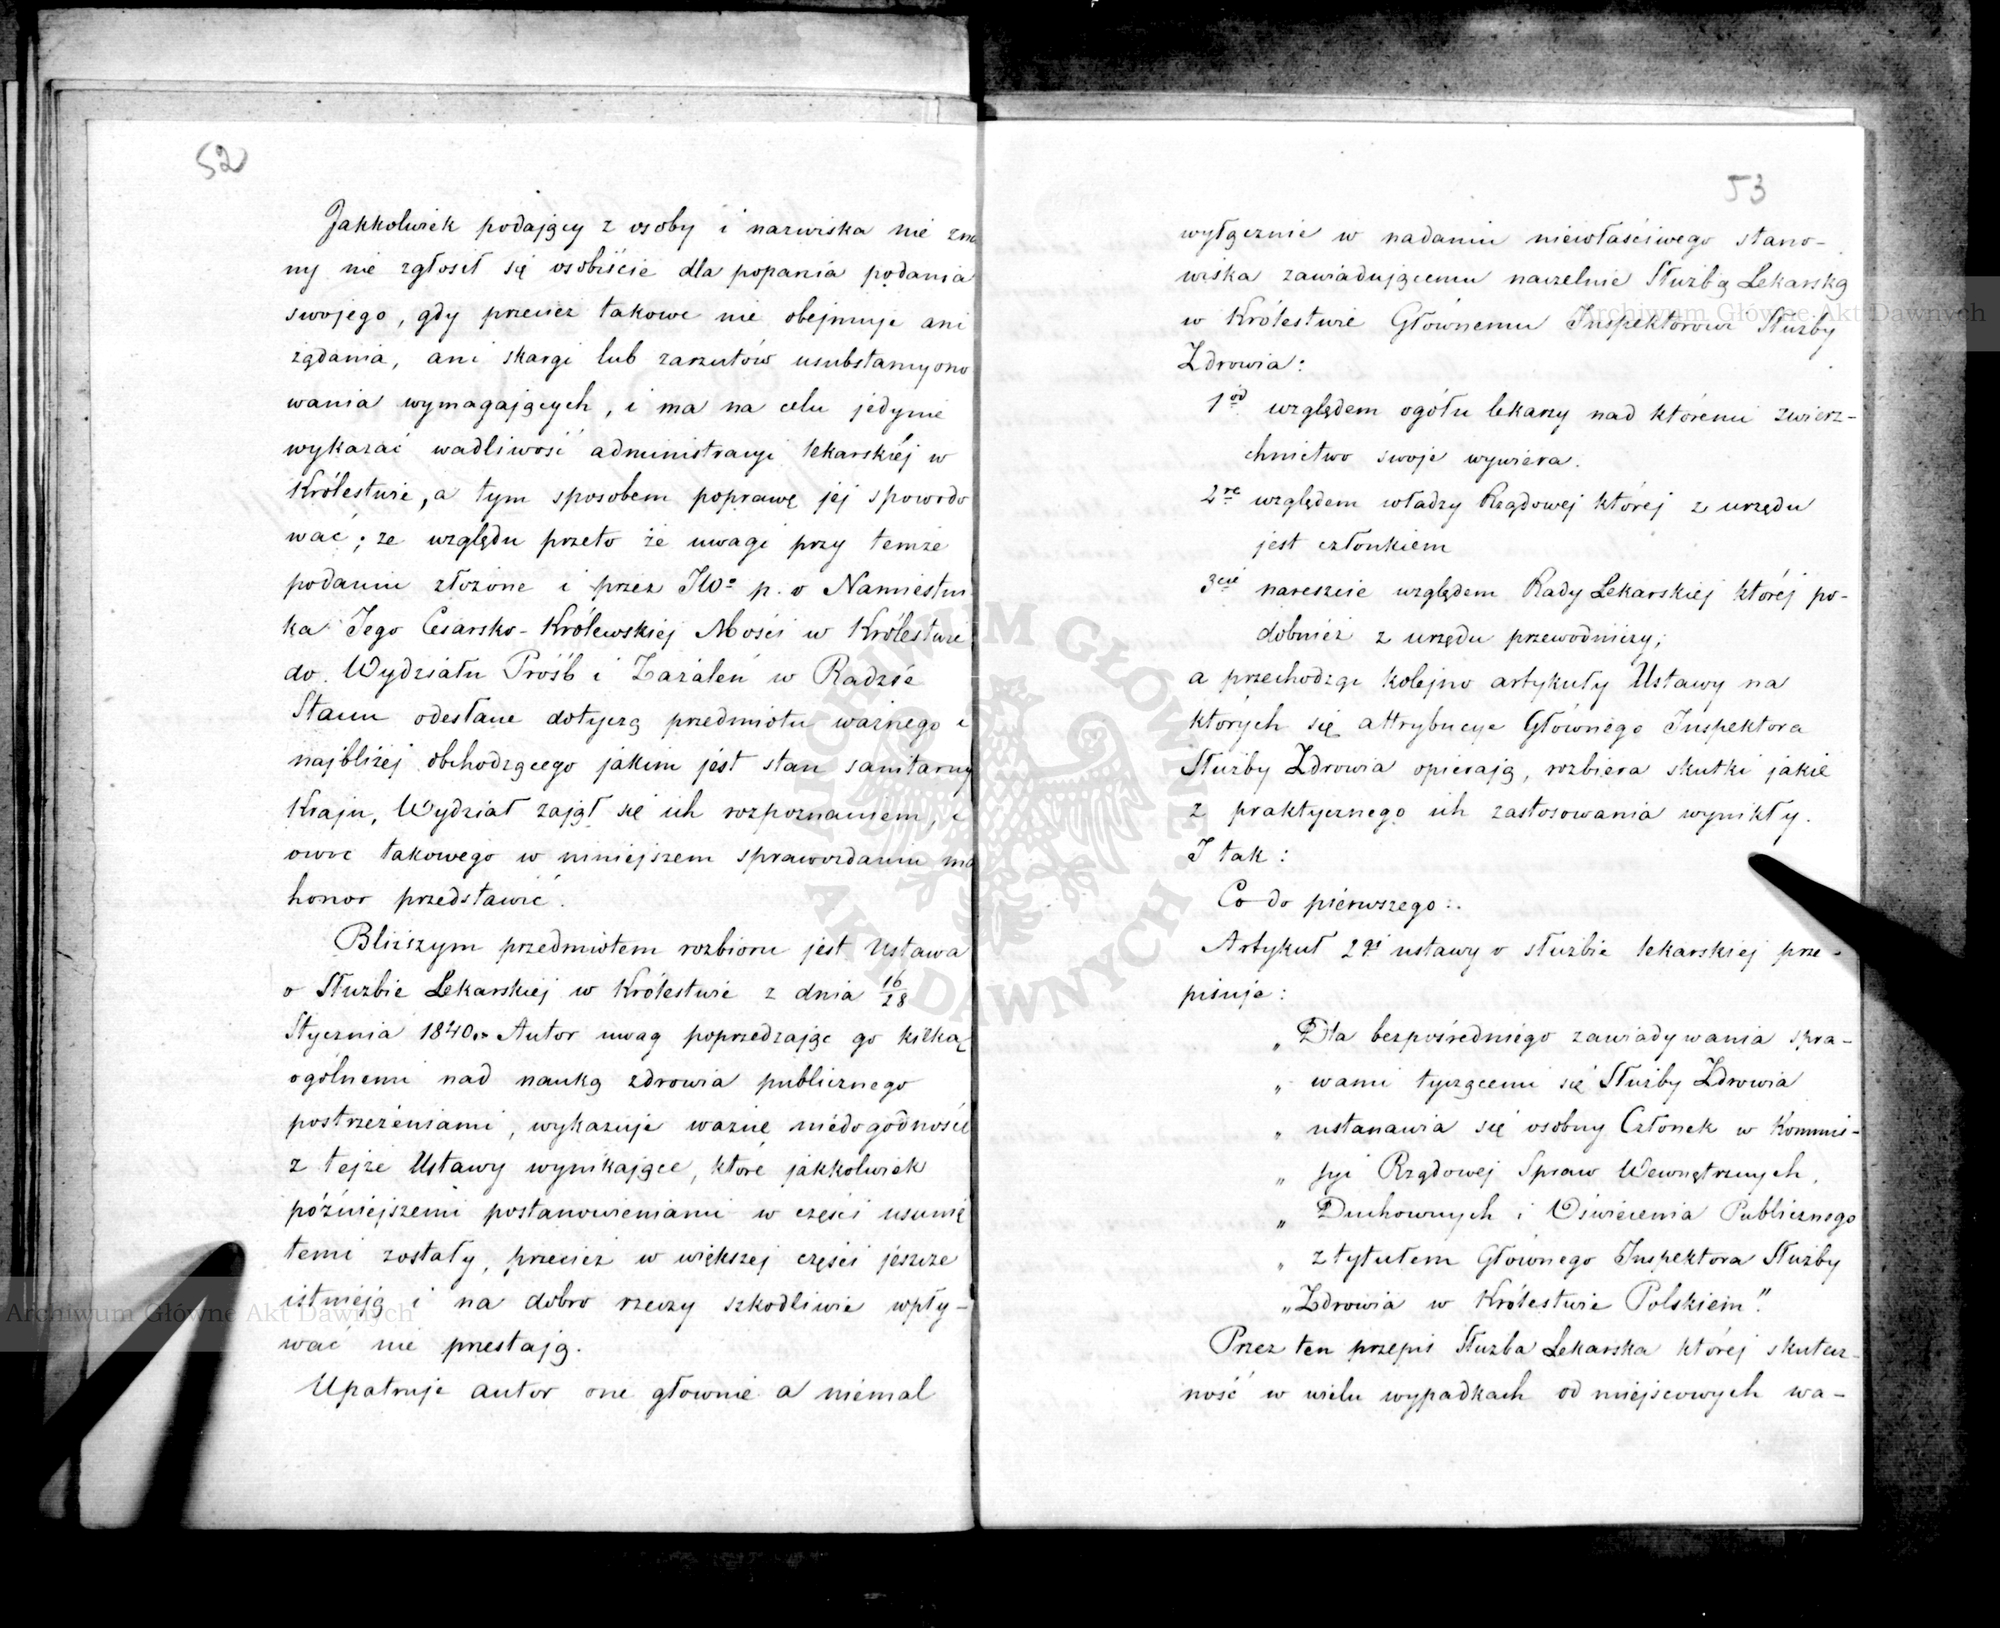 52
Jakkolwiek podający z osoby i nazwiska nie zna
ny nie zgłosił się osobiście dla poparcia podania
swojego, gdy przecież takowe nie obejmuje ani
żądania, ani skargi lub zarzutów usubstancyono
wania wymagających, i ma na celu jedynie
wykazać wadliwość administracyi lekarskiéj w
Królestwie, a tym sposobem poprawę jej spowodo
wać; ze względu przeto że uwagi przy temże
podaniu złożone i przez JWo p. o Namiestni
ka Jego Cesarsko-Królewskiéj Mości w Królestwie
do Wydziału Próśb i Zażaleń w Radzie
Stanu odesłane dotyczą przedmiotu ważnego i
najbliżej obchodzącego jakim jest stan sanitarny
Kraju, Wydział zajął się ich rozpoznaniem, i
owoc takowego w niniejszem sprawozdaniu ma
honor przedstawić.
Bliższym przedmiotem rozbioru jest Ustawa
o Służbie Lekarskiéj w Królestwie z dnia 16/28
Stycznia 1840 r. Autor uwag poprzedzając go kilką
ogólnemi nad nauką zdrowia publicznego
postrzeżeniami, wykazuje ważne niedogodności
z tejże Ustawy wynikające, które jakkolwiek
późniejszemi postanowieniami w części usunię
temi zostały, przecież w większej części jeszcze
istnieją i na dobro rzeczy szkodliwie wpły-
wać nie przestają.
Upatruje autor one głównie a niemal
53
wyłącznie w nadaniu niewłaściwego stano-
wiska zawiadującemu naczelnie Służbą Lekarską
w Królestwie Głównemu Inspektorowi Służby
Zdrowia:
1od względem ogółu lekarzy nad któremi zwierz-
chnictwo swoje wywiera.
2re względem władzy Rządowej której z urzędu
jest członkiem
3cie nareszcie względem Rady Lekarskiej któréj po-
dobnież z urzędu przewodniczy;
a przechodząc kolejno artykuły Ustawy na
których się attrybucye Głównego Inspektora
Służby Zdrowia opierają, rozbiera skutki jakie
z praktycznego ich zastosowania wynikły.
I tak:
Co do pierwszego:
Artykuł 2gi ustawy o służbie lekarskiej prze-
pisuje:
„ Dla bezpośredniego zawiadywania spra-
„ wami tyczącemi się Służby Zdrowia
„ ustanawia się osobny Członek w Kommis-
„ syi Rządowej Spraw Wewnętrznych,
„ Duchownych i Oświecenia Publicznego
„ z tytułem Głównego Inspektora Służby
„ Zdrowia w Królestwie Polskiem."
Przez ten przepis Służba Lekarska której skutecz-
ność w wielu wypadkach od miejscowych wa-
Archiwum Główne Akt Dawnych
Archiwum Główne Akt Dawnych
ARCHIWUM GŁÓWNE AKT DAWNYCH